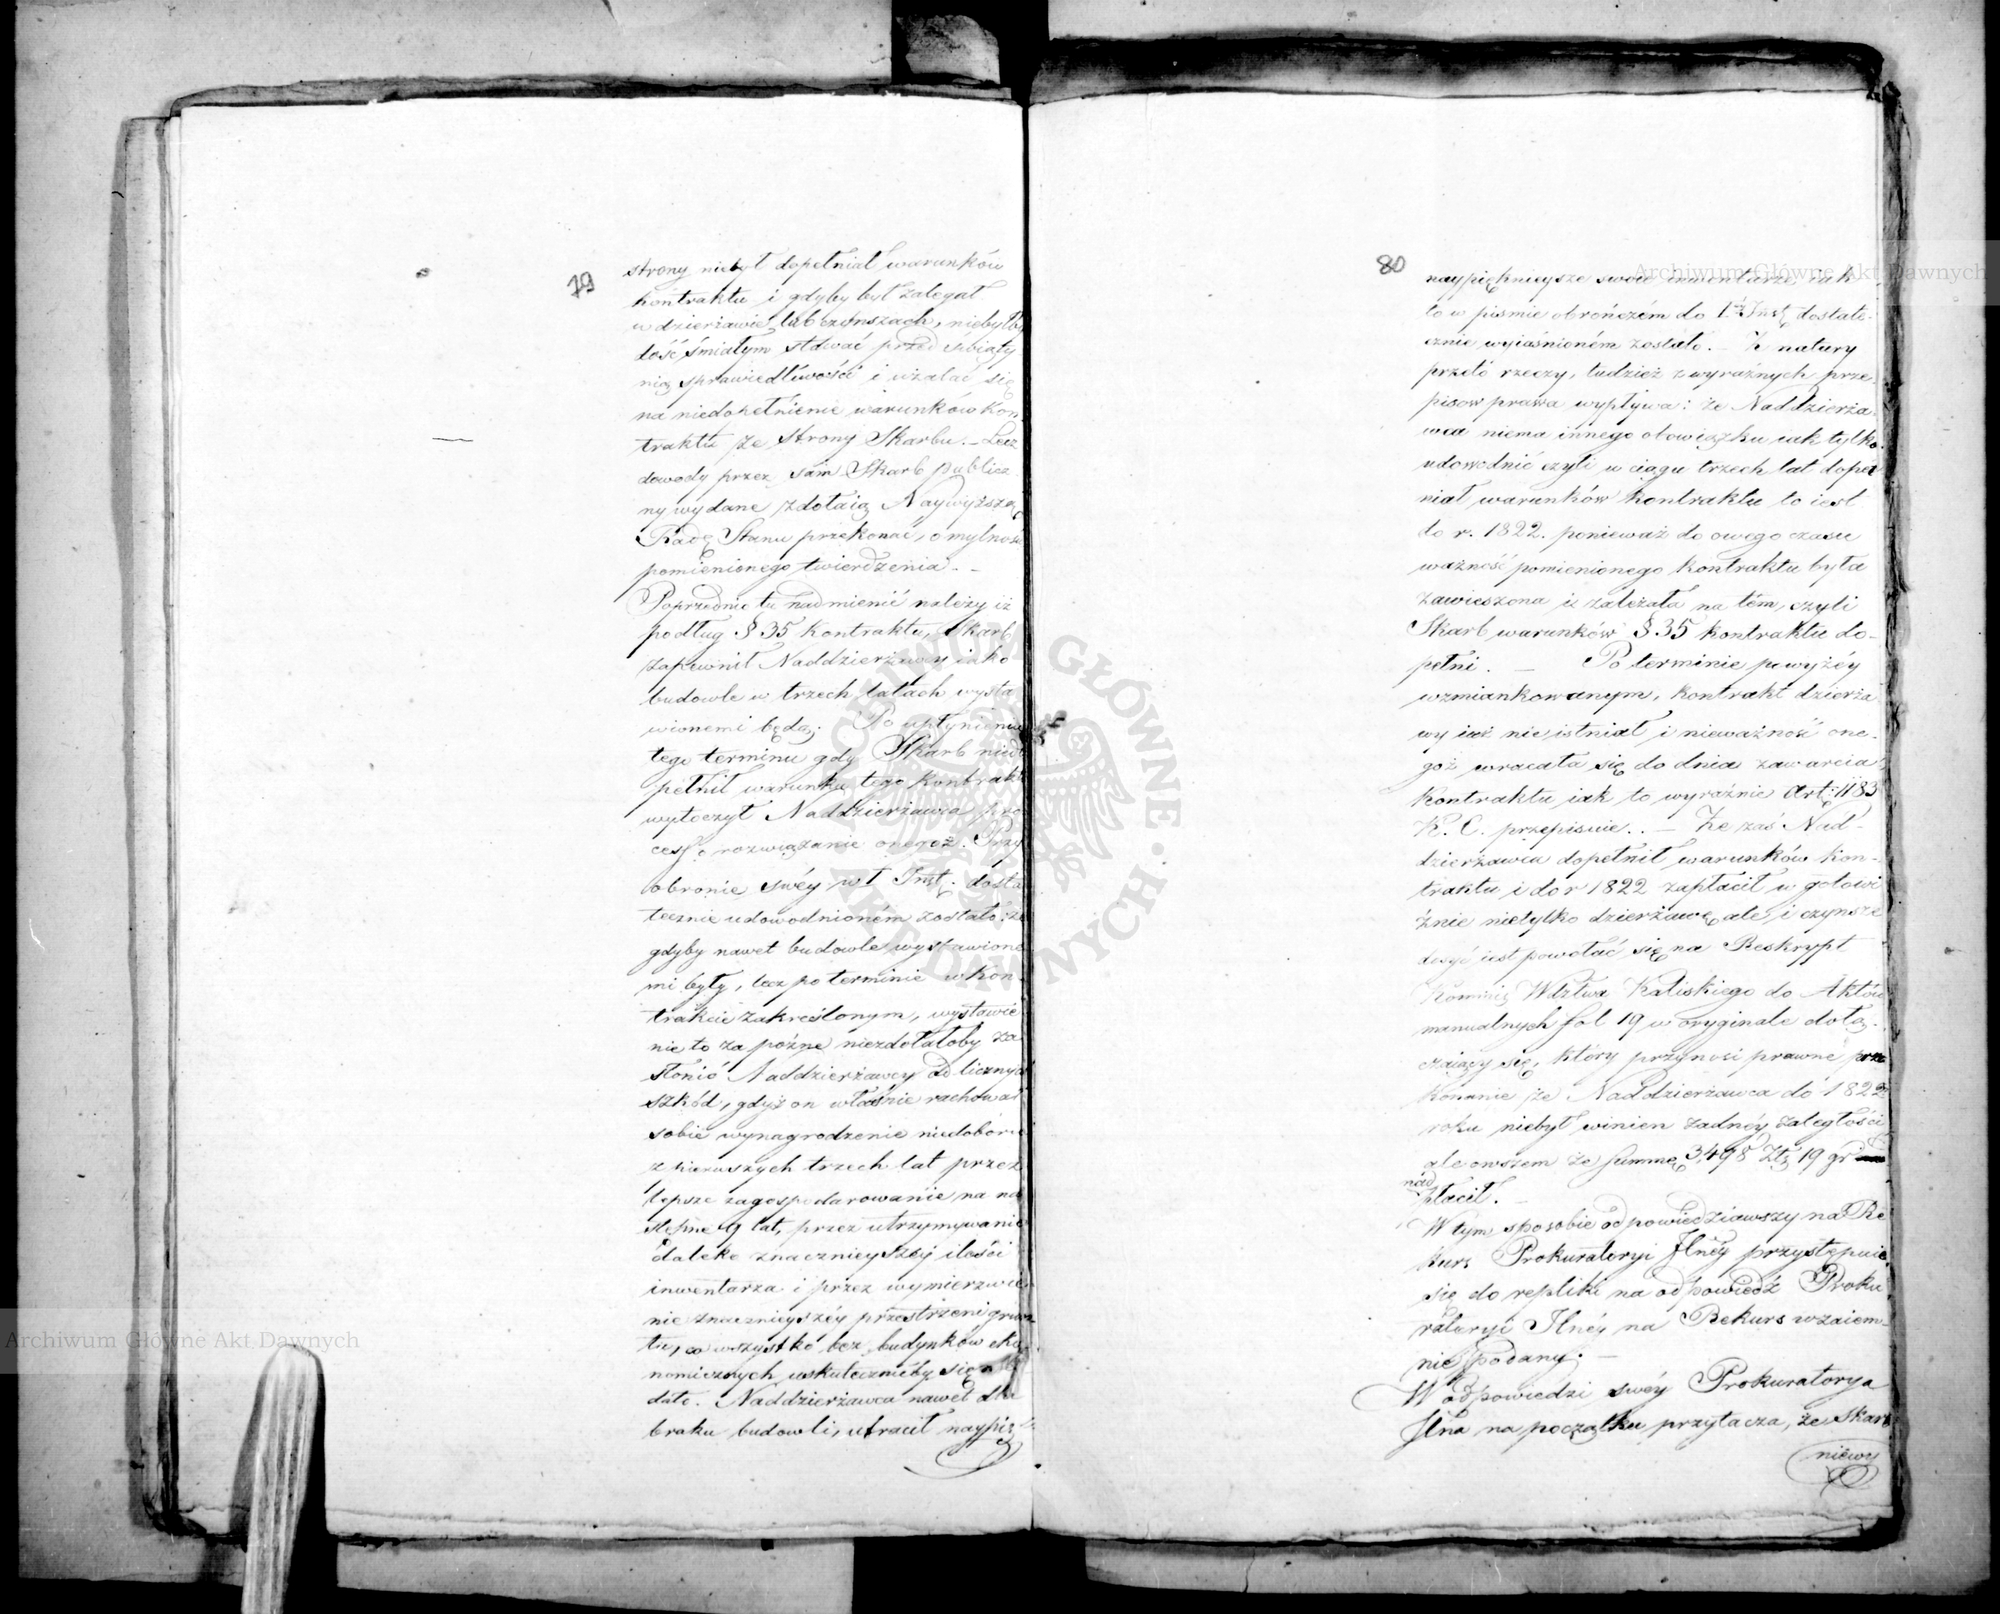 79
strony niebył dopełniał warunków
kontraktu i gdyby był zalegał
w dzierżawie lub czynszach, niebyłby
dość śmiałym stawać przed świąty
nią sprawiedliwości i użalać się
na niedopełnienie warunków Kon
traktu ze strony Skarbu. – Lecz
dowody przez sam Skarb publicz
ny wydane zdołaią Naywyższą
Radę Stanu przekonać, o mylności
pomienionego twierdzenia. –
Poprzednio tu nadmienić należy iż
podług § 35 Kontraktu, Skarb
zapewnił Naddzierżawcy iako
budowle w trzech latach wysta
wionemi będą. Po upłynieniu
tego terminu gdy Skarb niedo
pełnił warunku tego kontraktu
wytoczył Naddzierżawca pro
cess o rozwiązanie onegoż. Przy
obronie swéy w I Inst. dosta
tecznie udowodnioném zostało: że
gdyby nawet budowle wystawione
mi były, lecz po terminie w Kon
trakcie zakreślonym, wystawie
nie to za późne niezdołałoby za
słonić Naddzierżawcy od licznych
szkód, gdyż on właśnie rachował
sobie wynagrodzenie niedoboru
z pierwszych trzech lat przez
lepsze zagospodarowanie na na
stępne 9 lat, przez utrzymywanie
daleko znacznieyszéy ilości
inwentarza i przez wymierzwie
nie znacznieyszéy przestrzeni grun
tu, co wszystko bez budynków eko
nomicznych uskutecznićby się nie
dało. Naddzierżawca nawet dla
braku budowli, utracił naypię
80
naypięknieysze swoie inwentarze, iak
to w pismie obrończém do I Inst dostate-
cznie wyiaśnioném zostało. – Z natury
przeto rzeczy, tudzież z wyraźnych prze-
pisow prawa wypływa: że Naddzierża-
wca niema innego obowiązku iak tylko
udowodnić czyli w ciągu trzech lat dopeł
niał warunków Kontraktu to iest
do r. 1822. ponieważ do owego czasu
ważność pomienionego Kontraktu była
zawieszona i zależała na tém, czyli
Skarb warunków § 35 kontraktu do-
pełni. – Po terminie powyżéy
wzmiankowanym, kontrakt dzierża
wy iuż nieistniał i nieważność one-
goż wracała się do dnia zawarcia
Kontraktu iak to wyraźnie Art: 1183
K. C. przepisuie. – Że zaś Nad-
dzierżawca dopełnił warunków Kon-
traktu i do r 1822 zapłacił w gotowi
źnie nietylko dzierżawę ale i czynsze
dosyć iest powołać się na Reskrypt
Kommis Wdztwa Kaliskiego do Aktów
manualnych fol 19 w oryginale dołą-
czaiący się, który przynosi prawne prze
konanie że Naddzierżawca do 1822
roku niebył winien żadnéy zaległości
ale owszem że summę 3,498 Złp 19 gr
nad
płacił. –
W tym sposobie odpowiedziawszy na Re
kurs Prokuratoryi Jlnéy przystępuie
się do repliki na odpowiedź Proku
ratoryi Jlnéy na Rekurs wzaiem-
nie podany. –
W odpowiedzi swéy Prokuratorya
Jlna na początku przytacza, że Skarb
niewy
Archiwum Główne Akt Dawnych
Archiwum Główne Akt Dawnych
ARCHIWUM GŁÓWNE AKT DAWNYCH